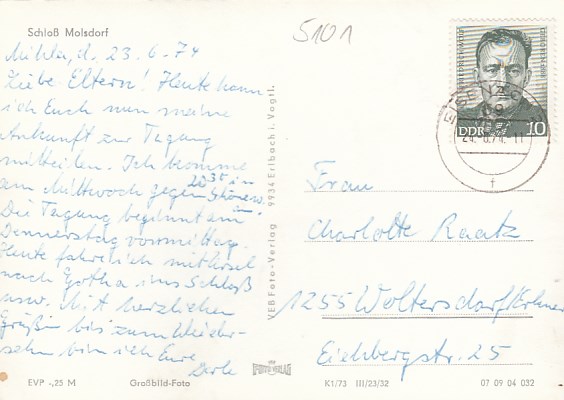 Schloß Molsdorf
5101
Mihla, d. 23.6.74
Liebe Eltern! Heute kann
ich Euch nun meine
Ankunft zur Tagung
mitteilen. Ich komme
am Mittwoch gegen 20³⁵ in
Schönew. an.
Die Tagung beginnt am
Donnerstag vormittag.
Heute fahre ich mit
nach Gotha ins Schloß
usw. Mit herzlichen
Grüßen bis zum Wieder-
sehn bin ich Eure
VEB Foto-Verlag 9934 Erlbach i. Vogtl.
DDR 10
24.-6.74.-11
Frau
Charlotte Raatz
1255 Woltersdorf/Erkner
Eichbergstr. 25
EVP -,25 M
Großbild-Foto
FOTO VERLAG
K1/73 III/23/32
07 09 04 032